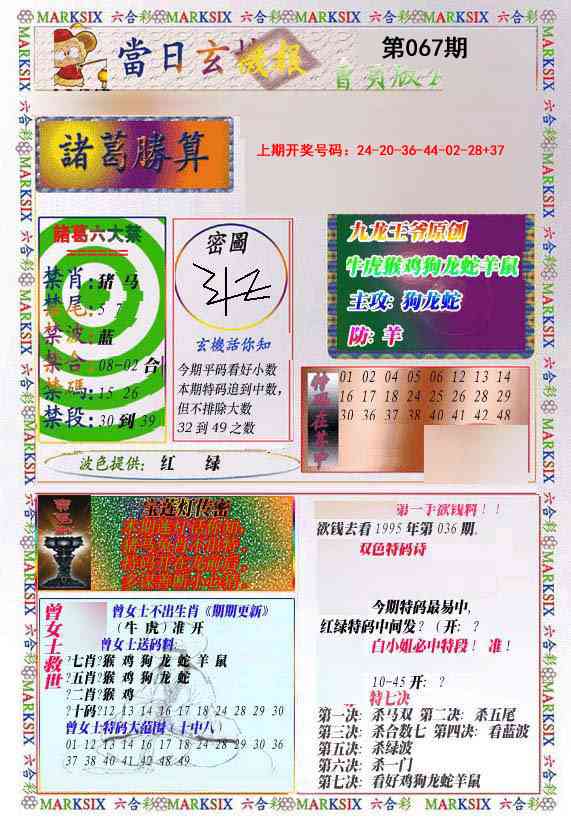 MARKSIX 六合彩 MARKSIX 六合彩 MARKSIX 六合彩 MARKSIX 六合彩
當日玄機報
第067期
諸葛勝算
上期开奖号码：24-20-36-44-02-28+37
諸葛六大禁
禁肖：猪马
禁尾：5 7
禁波：蓝
禁合：08-02 合
禁碼：15 26
禁段：30 到 39
密圖
玄機話你知
今期平码看好小数
本期特码追到中数，
但不排除大数
32 到 49 之数
九龙王爷原创
牛虎猴鸡狗龙蛇羊鼠
主攻: 狗龙蛇
防: 羊
01 02 04 05 06 12 13 14
16 17 18 24 25 26 28 29
30 36 37 38 40 41 42 48
波色提供: 红 绿
宝莲灯传密
第一手欲钱料！！
欲钱去看 1995 年第 036 期。
双色特码诗
今期特码最易中，
红绿特码中间发？（开：？
白小姐必中特段！ 准！
10-45 开：？
特七决
第一决: 杀马双 第二决: 杀五尾
第三决: 杀合数七 第四决: 看蓝波
第五决: 杀绿波
第六决: 杀一门
第七决: 看好鸡狗龙蛇羊鼠
曾女士救世
曾女士不出生肖《期期更新》
（牛 虎）准 开
曾女士送码料
?七肖?猴 鸡 狗 龙 蛇 羊 鼠
?五肖?猴 鸡 狗 龙 蛇
?二肖?猴 鸡
?十码?12 13 14 16 17 18 24 28 29 30
曾女士特码大范围（十中八）
01 12 13 14 16 17 18 24 28 29 30 36
37 38 40 41 42 48 49
MARKSIX 六合彩 MARKSIX 六合彩 MARKSIX 六合彩 MARKSIX 六合彩